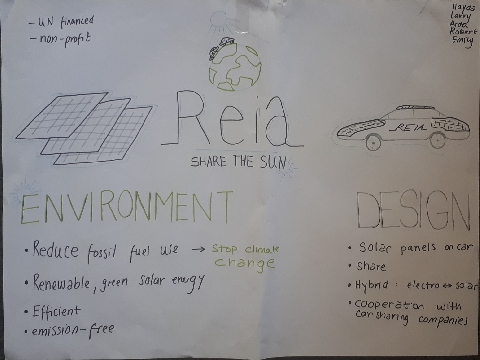 - UN financed
- non-profit
Larry
Robert
Emily
Reia
SHARE THE SUN
REIA
ENVIRONMENT
• Reduce fossil fuel use → Stop climate change
• Renewable, green solar energy
• Efficient
• emission-free
DESIGN
• Solar panels on car
• Share
• Hybrid: electro ↔ solar
• cooperation with
car sharing companies